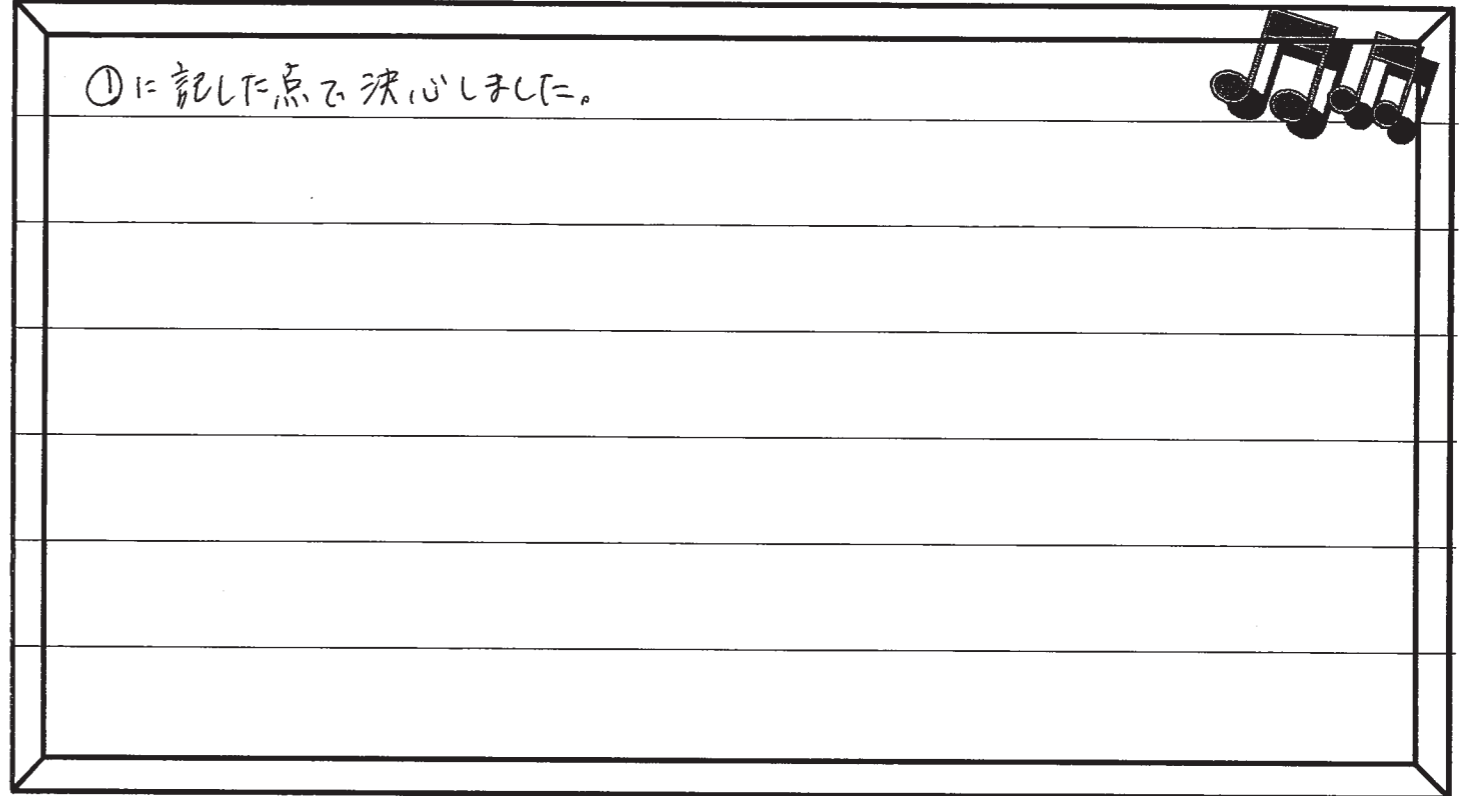 ①に記した点で決心しました。